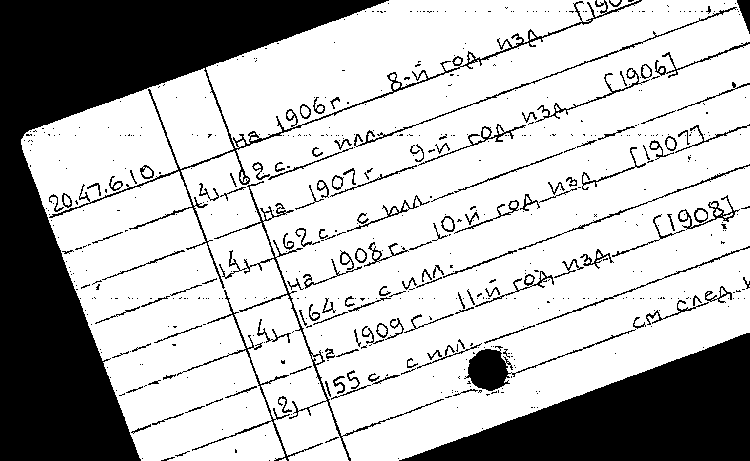 на 1906 г. 8-й год изд.
20.47.6.10. [4], 162 с. с илл.
на 1907 г. 9-й год изд. [1906]
[4], 162 с. с илл.
на 1908 г. 10-й год изд. [1907]
[4], 164 с. с илл.
на 1909 г. 11-й год изд. [1908]
[2], 155 с. с илл.
см след